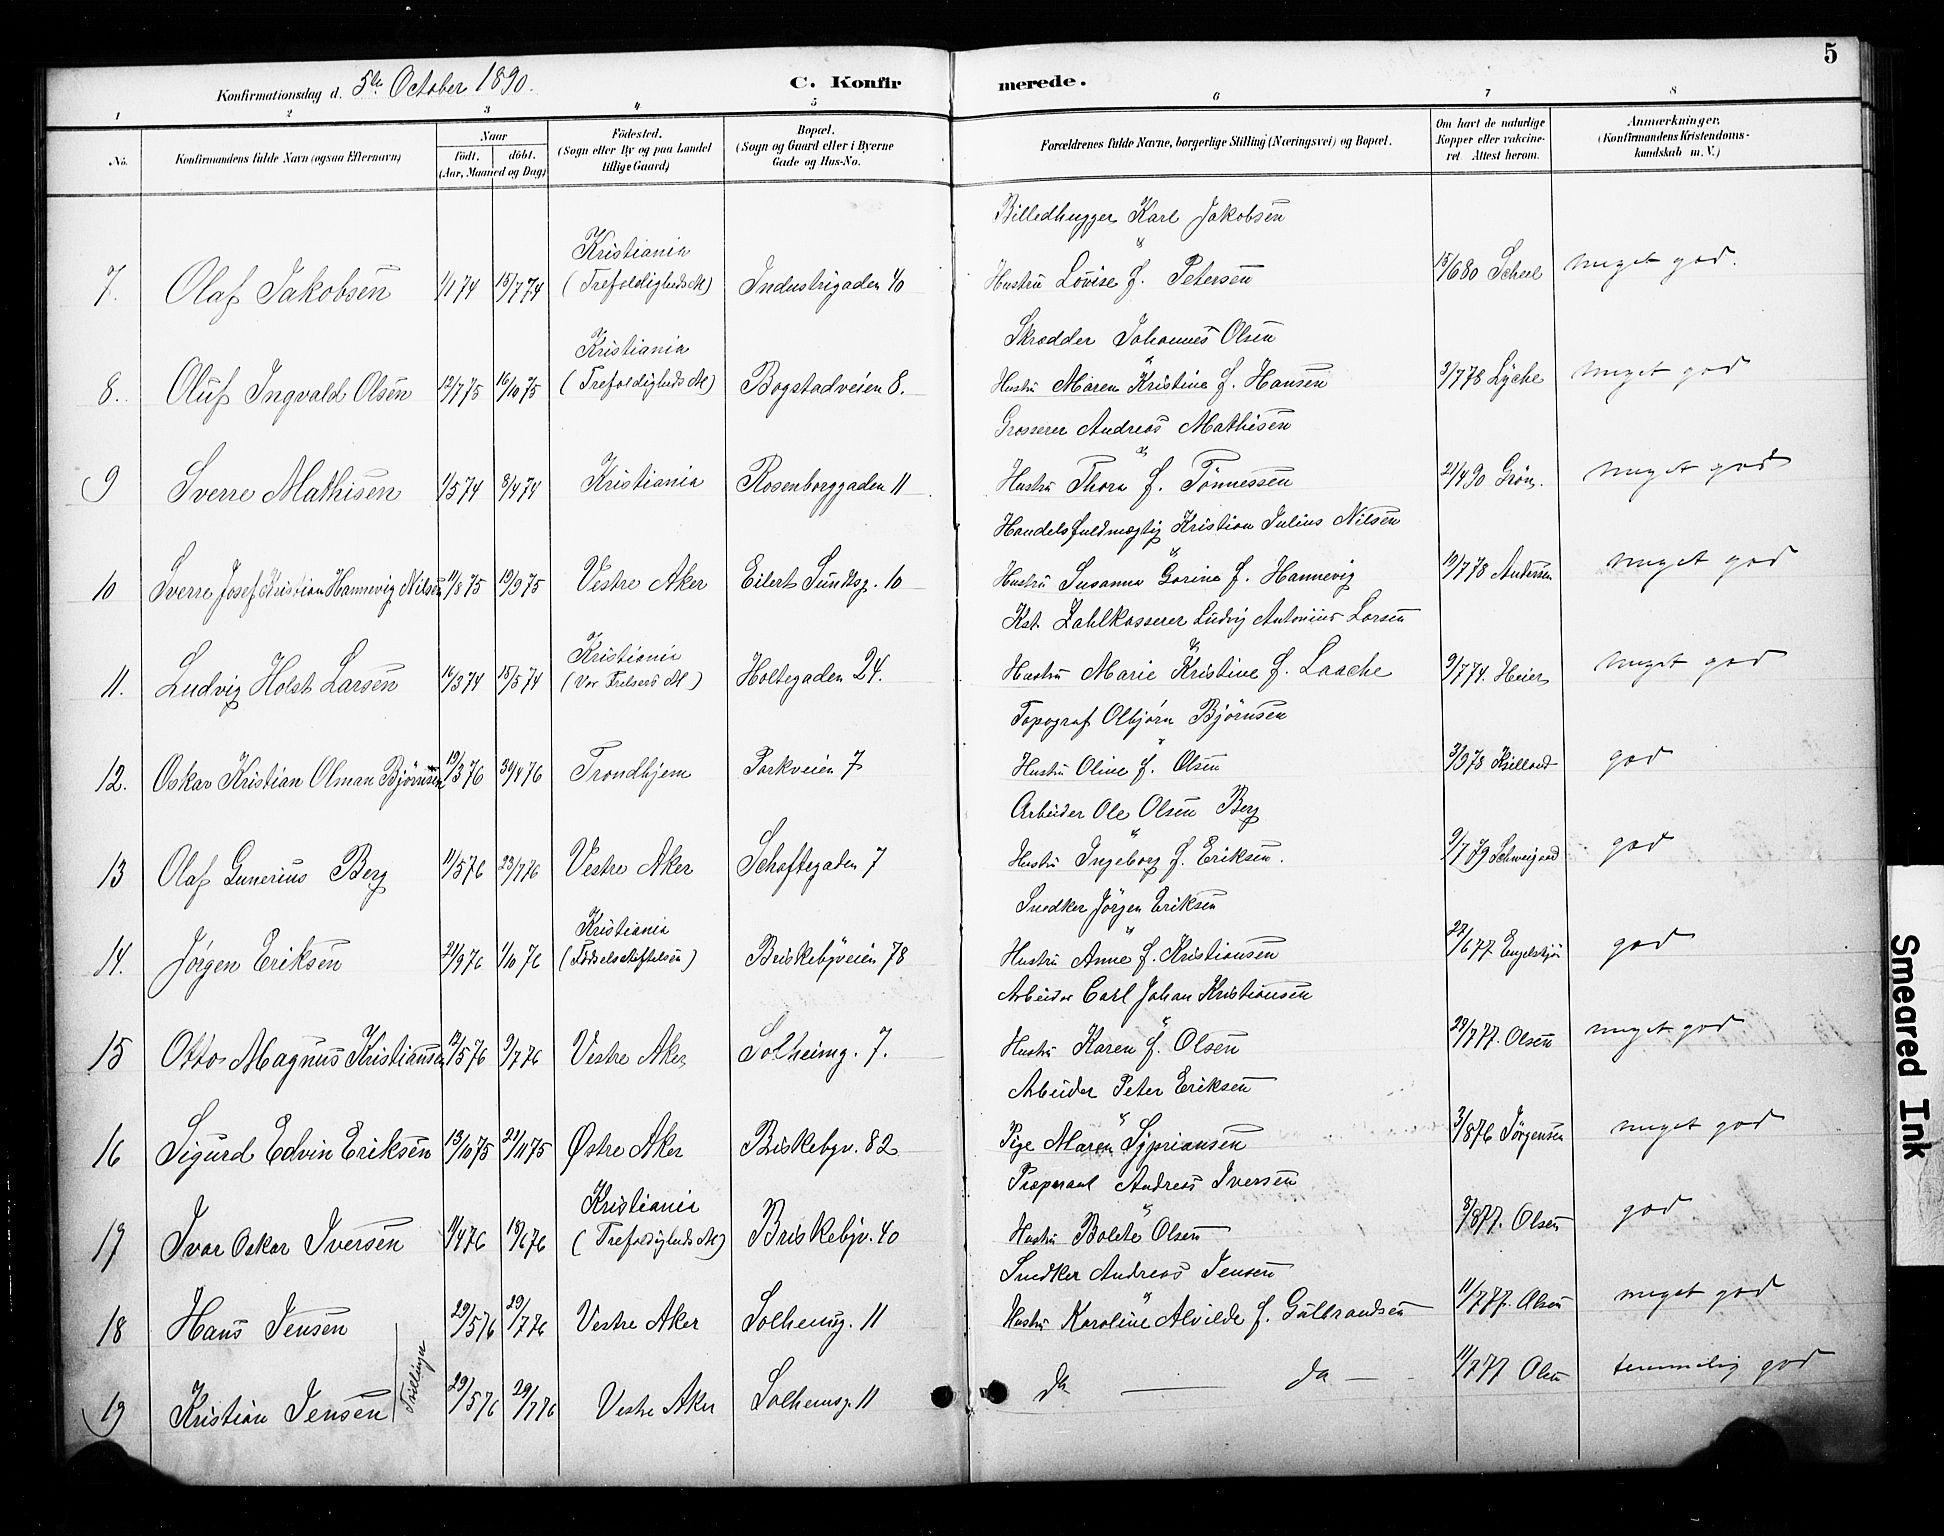 5
Konfirmationsdag d. 5te October 1890.
C. Konfirmerede.
1 2 3 4 5 6 7 8
No. Konfirmandens fulde Navn (ogsaa Efternavn) Naar födt. döbt. (Aar, Maaned og Dag) Födested. (Sogn eller By og paa Landet tillige Gaard) Bopæl. (Sogn og Gaard eller i Byerne Gade og Hus-No. Forældrenes fulde Navne, borgerlige Stilling (Næringsvei) og Bopæl. Om havt de naturlige Kopper eller vakcineret. Attest herom. Anmærkninger. (Konfirmandens Kristendomskundskab m. V.)
Billedhugger Karl Jakobsen
7. Olaf Jakobsen 1/1 74 15/7 74 Kristiania (Trefoldigheds M) Industrigaden 40 & Hustru Lovise f. Petersen 15/6 80 Scheel meget god.
Skrædder Johannes Olsen
8. Oluf Ingvald Olsen 12/7 75 16/10 75 Kristiania (Trefoldigheds M) Bogstadveien 8. & Hustru Maren Kristine f. Hansen 3/7 78 Lyche meget god
Grosserer Andreas Mathisen
9 Sverre Mathisen 1/5 74 8/4 74 Kristiania Rosenborggaden 11 & Hustru Thora f. Tönnessen 21/4 90 Grön. meget god
Handelsfuldmægtig Kristian Julius Nilsen
10 Sverre Josef Kristian Hannevig Nilsen 11/8 75 19/9 75 Vestre Aker Eilert Sundtsg. 10 & Hustru Susanna Gorine f. Hannevig 10/7 78 Andersen meget god
Kst. Zahlkasserer Ludvig Antonius Larsen
11. Ludvig Holst Larsen 16/3 74 15/5 74 Kristiania (Vor Frelsers M) Holtegaden 24. & Hustru Marie Kristine f. Laache 9/7 74. Heier meget god
Topograf Olbjörn Björnsen
12. Oskar Kristian Olman Björnsen 19/3 76 30/4 76 Trondhjem Parkveien 7 & Hustru Oline f. Olsen 3/9 78 Kielland god
Arbeider Ole Olsen Berg
13 Olaf Gunerius Berg 11/5 76 23/7 76 Vestre Aker Schaftegaden 7 & Hustru Ingeborg f. Eriksen. 9/7 79 Schweigaard god
Snedker Jörgen Eriksen
14. Jörgen Eriksen 21/9 76 1/10 76 Kristiania (Födselsstiftelsen) Briskebyveien 78 & Hustru Anne f. Kristiansen 27/6 77 god
Arbeider Carl Johan Kristiansen
15 Otto Magnus Kristiansen 12/5 76 9/7 76 Vestre Aker Solheimg. 7. & Hustru Karen f. Olsen 29/7 77. Olsen meget god
Arbeider Peter Eriksen
16 Sigurd Edvin Eriksen 13/10 75 21/11 75 Østre Aker Briskebyv. 82 & Pige Maren Sypriansen 3/8 76 Jörgensen meget god
Andreas Iversen
17 Ivar Oskar Iversen 11/4 76 18/6 76 Kristiania (Trefoldigheds M) Briskebyv. 40 & Hustru Bolete Olsen 8/8 77. Olsen god
Snedker Andreas Jensen
18 Hans Jensen 29/5 76 29/7 76 Vestre Aker Solhemsg. 11 & Hustru Karoline Alvilde f. Gulbrandsen 11/7 77. Olsen meget god
Tvillinger
19 Kristian Jensen 29/5 76 29/7 76 Vestre Aker Solhemsg. 11 do — do — 11/7 77 Olsen temmelig god
Smeared Ink